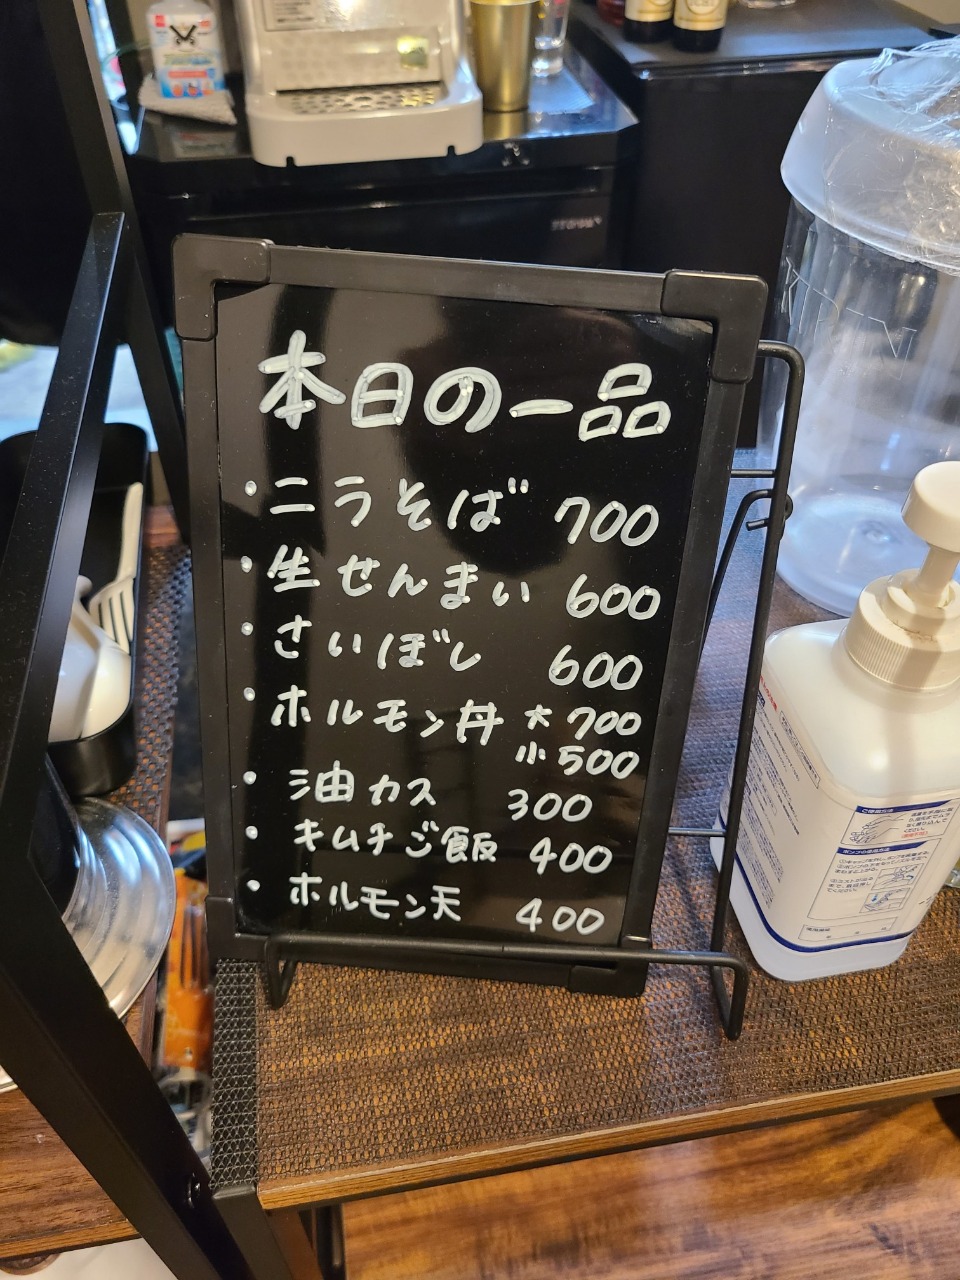 本日の一品
・ニラそば 700
・生せんまい 600
・さいぼし 600
・ホルモン丼 大700
小500
・油カス 300
・キムチご飯 400
・ホルモン天 400